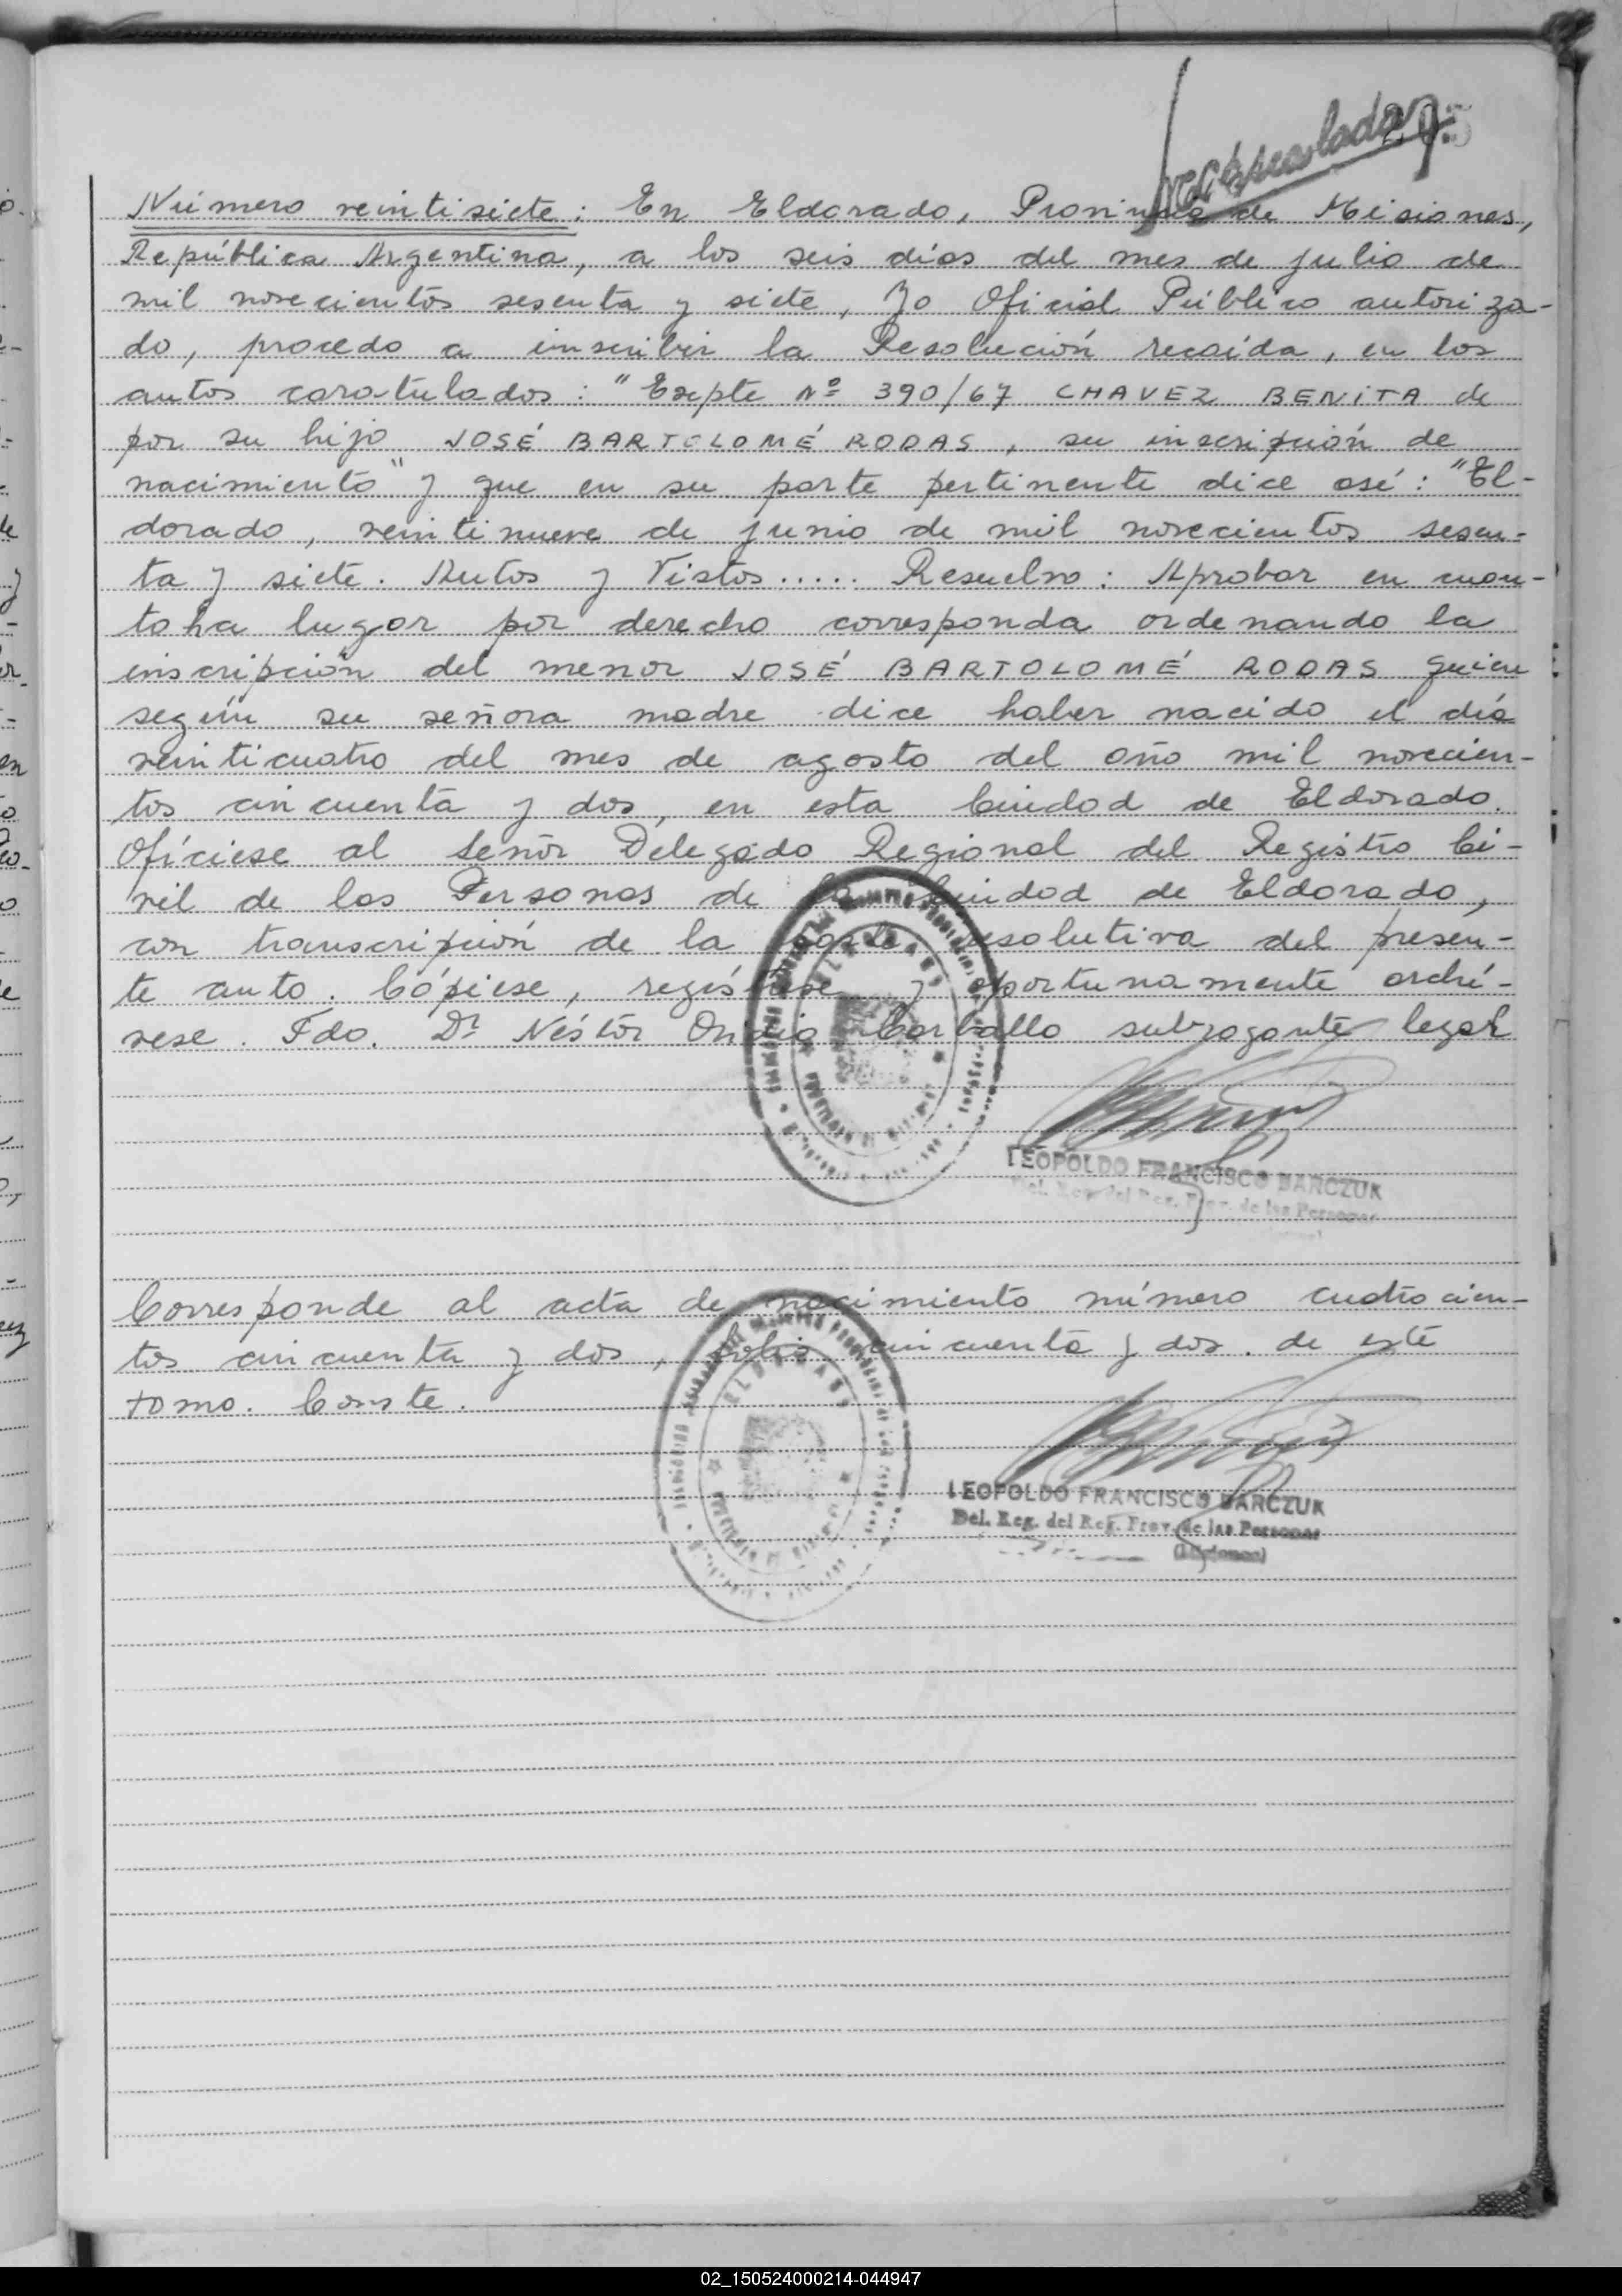 Número veintisiete: En Eldorado, Provincia de Misiones,
República Argentina, a los seis días del mes de julio de
mil novecientos sesenta y siete, Yo Oficial Público autoriza-
do, procedo a inscribir la Resolución recaída, en los
autos caratulados: "Expte Nº 390/67 CHAVEZ BENITA de
por su hijo JOSÉ BARTOLOMÉ RODAS, su inscripción de
nacimiento" y que en su parte pertinente dice así: "El-
dorado, veintinueve de junio de mil novecientos sesen-
ta y siete. Autos y Vistos..... Resuelvo: Aprobar en cuan-
to ha lugar por derecho corresponda ordenando la
inscripción del menor JOSÉ BARTOLOMÉ RODAS quien
según su señora madre dice haber nacido el día
veinticuatro del mes de agosto del año mil novecien-
tos cincuenta y dos, en esta Ciudad de Eldorado.
Ofíciese al Señor Delegado Regional del Registro Ci-
vil de las Personas de la Ciudad de Eldorado,
con transcripción de la parte resolutiva del presen-
te auto. Cópiese, regístrese y oportunamente archí-
vese. Fdo. Dr Néstor Ovidio Carballo subrogante legal
LEOPOLDO FRANCISCO BARCZUK
Del. Reg. del Reg. Prov. de las Personas
Corresponde al acta de nacimiento número cuatrocien-
tos cincuenta y dos, folio cincuenta y dos. de este
tomo. Conste.
ELDORADO
LEOPOLDO FRANCISCO BARCZUK
Del. Reg. del Reg. Prov. de las Personas
(Misiones)
02_150524000214-044947